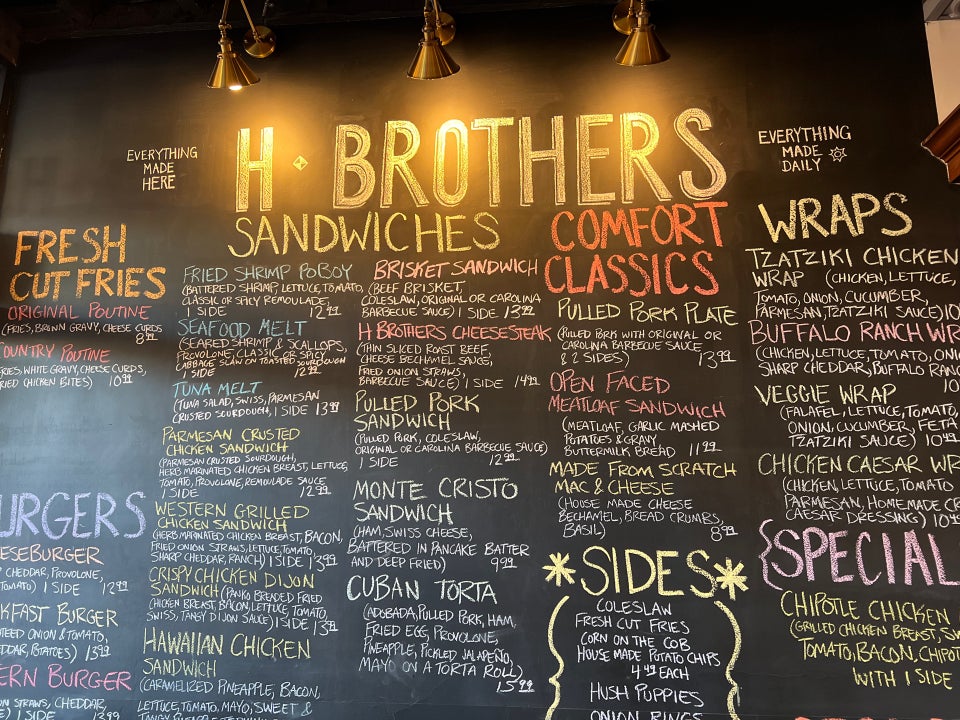 EVERYTHING
MADE
HERE
H · BROTHERS
EVERYTHING
MADE
DAILY
FRESH
CUT FRIES
ORIGINAL POUTINE
(FRIES, BROWN GRAVY, CHEESE CURDS
8.99
COUNTRY POUTINE
FRIES, WHITE GRAVY, CHEESE CURDS,
FRIED CHICKEN BITES) 10.99
BURGERS
CHEDDAR, PROVOLONE,
TOMATO) 1 SIDE 12.99
BURGER
ONION & TOMATO,
POTATOES) 13.99
BURGER
STRAWS, CHEDDAR,
1 SIDE 13.99
SANDWICHES
FRIED SHRIMP POBOY
(BATTERED SHRIMP, LETTUCE, TOMATO,
CLASSIC OR SPICY REMOULADE,
1 SIDE 12.99
SEAFOOD MELT
(SEARED SHRIMP & SCALLOPS,
PROVOLONE, CLASSIC OR SPICY
CABBAGE SLAW ON TOASTED SOURDOUGH
1 SIDE 12.99
TUNA MELT
(TUNA SALAD, SWISS, PARMESAN
CRUSTED SOURDOUGH, 1 SIDE 13.99
PARMESAN CRUSTED
CHICKEN SANDWICH
(PARMESAN CRUSTED SOURDOUGH,
HERB MARINATED CHICKEN BREAST, LETTUCE,
TOMATO, PROVOLONE, REMOULADE SAUCE
1 SIDE 12.99
WESTERN GRILLED
CHICKEN SANDWICH
(HERB MARINATED CHICKEN BREAST, BACON,
FRIED ONION STRAWS, LETTUCE, TOMATO,
SHARP CHEDDAR, RANCH) 1 SIDE 13.99
CRISPY CHICKEN DIJON
SANDWICH (PANKO BREADED FRIED
CHICKEN BREAST, BACON, LETTUCE, TOMATO,
SWISS, TANGY DIJON SAUCE) 1 SIDE 13.99
HAWAIIAN CHICKEN
SANDWICH
(CARAMELIZED PINEAPPLE, BACON,
LETTUCE, TOMATO, MAYO, SWEET &
BRISKET SANDWICH
(BEEF BRISKET,
COLESLAW, ORIGINAL OR CAROLINA
BARBECUE SAUCE) 1 SIDE 13.99
H BROTHERS CHEESESTEAK
(THIN SLICED ROAST BEEF,
CHEESE BECHAMEL SAUCE,
FRIED ONION STRAWS,
BARBECUE SAUCE) 1 SIDE 14.99
PULLED PORK
SANDWICH
(PULLED PORK, COLESLAW,
ORIGINAL OR CAROLINA BARBECUE SAUCE)
1 SIDE 12.99
MONTE CRISTO
SANDWICH
(HAM, SWISS CHEESE,
BATTERED IN PANCAKE BATTER
AND DEEP FRIED) 9.99
CUBAN TORTA
(ADOBADA, PULLED PORK, HAM,
FRIED EGG, PROVOLONE,
PINEAPPLE, PICKLED JALAPEÑO,
MAYO ON A TORTA ROLL)
15.99
COMFORT
CLASSICS
PULLED PORK PLATE
(PULLED PORK WITH ORIGINAL OR
CAROLINA BARBECUE SAUCE
& 2 SIDES) 13.99
OPEN FACED
MEATLOAF SANDWICH
(MEATLOAF, GARLIC MASHED
POTATOES & GRAVY
BUTTERMILK BREAD 11.99
MADE FROM SCRATCH
MAC & CHEESE
(HOUSE MADE CHEESE
BECHAMEL, BREAD CRUMBS,
BASIL) 8.99
SIDES
COLESLAW
FRESH CUT FRIES
CORN ON THE COB
HOUSE MADE POTATO CHIPS
4.49 EACH
HUSH PUPPIES
ONION RINGS
WRAPS
TZATZIKI CHICKEN
WRAP (CHICKEN, LETTUCE,
TOMATO, ONION, CUCUMBER,
PARMESAN, TZATZIKI SAUCE) 10
BUFFALO RANCH WR
(CHICKEN, LETTUCE, TOMATO, ONI
SHARP CHEDDAR, BUFFALO RANC
10
VEGGIE WRAP
(FALAFEL, LETTUCE, TOMATO,
ONION, CUCUMBER, FETA
TZATZIKI SAUCE) 10.99
CHICKEN CAESAR WR
(CHICKEN, LETTUCE, TOMATO
PARMESAN, HOMEMADE CR
CAESAR DRESSING) 10.99
SPECIAL
CHIPOTLE CHICKEN
(GRILLED CHICKEN BREAST, SW
TOMATO, BACON, CHIPOT
WITH 1 SIDE